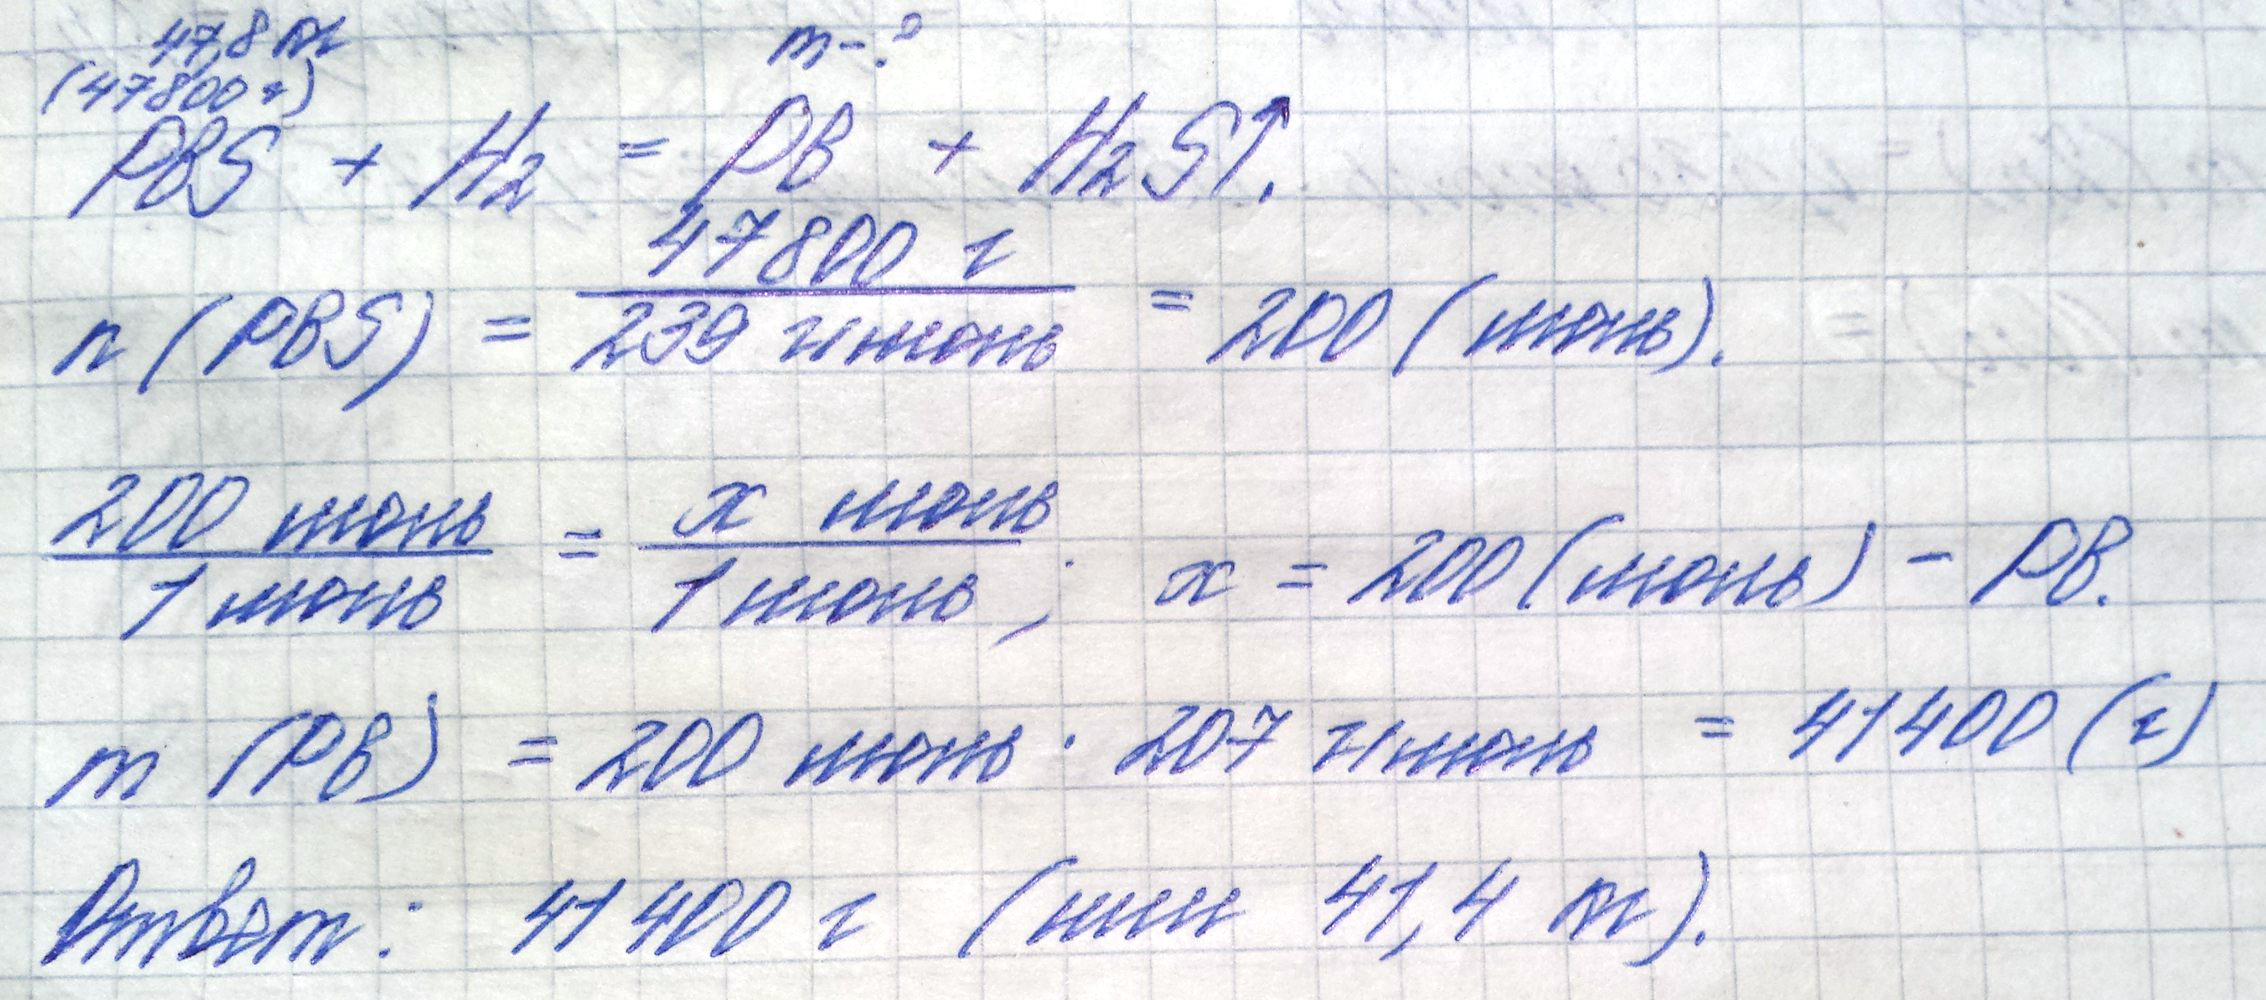 47,8 т m - ?
(47800 г)
PbS + H₂ = Pb + H₂S↑.
n (PbS) = 47800 г / 239 г/моль = 200 (моль).
200 моль / 1 моль = x моль / 1 моль ; x = 200 (моль) - Pb.
m (Pb) = 200 моль · 207 г/моль = 41400 (г)
Ответ: 41400 г (или 41,4 т).